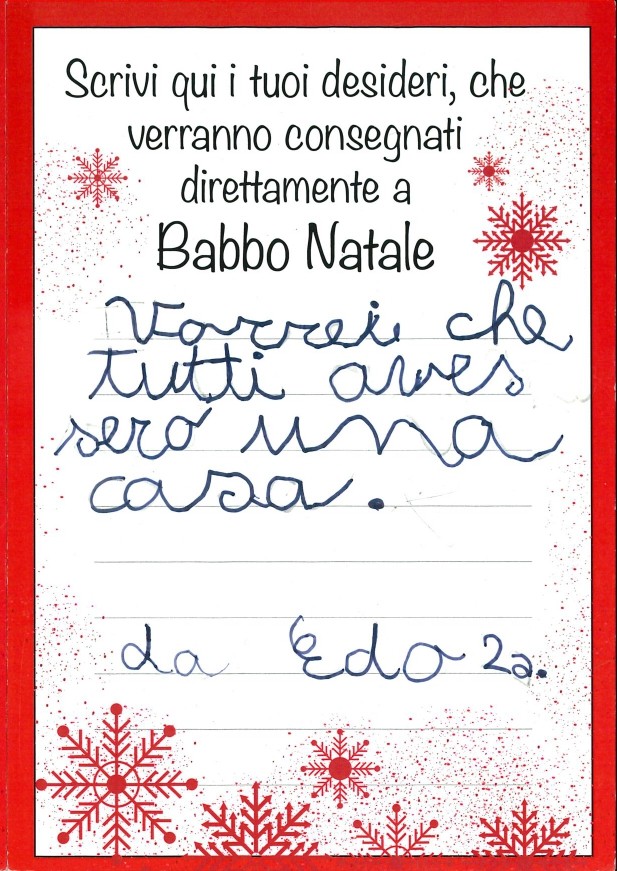 Scrivi qui i tuoi desideri, che
verranno consegnati
direttamente a
Babbo Natale
Vorrei che
tutti aves
sero una
casa.
da Edo 2a.